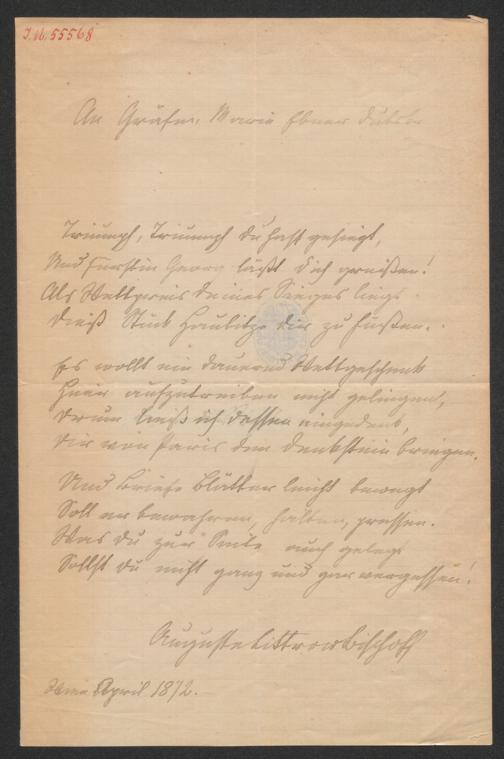 J.N. 55568
An Gräfin Marie Ebner Dubsky
Triumph, Triumph du hast gesiegt,
Und Fürstin Georg läßt dich grüßen!
Als Wettpreis deines Sieges liegt
Dieß Stück Haulitz dir zu Füßen.
Es wollt ein dauernd Wettgeschenk
Hier aufzutreiben nicht gelingen,
Drum ließ ich dessen eingedenk,
Dir von Paris den Denkstein bringen.
Und Briefe Blätter leicht bewegt
Soll er bewahren, halten, pressen.
Was du zur Seite auch gelegt
Sollst du nicht ganz und gar vergessen!
Auguste Littrow Bischoff
Wien April 1872.